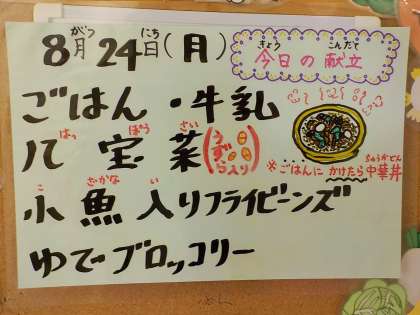 8月24日(月)
がつ にち
きょう こんだて
今日の献立
ごはん・牛乳
はっ ぽう さい
八宝菜(うずら入り)
ちゅうかどん
※ごはんにかけたら中華丼
こ ざかな い
小魚入りフライビーンズ
ゆでブロッコリー